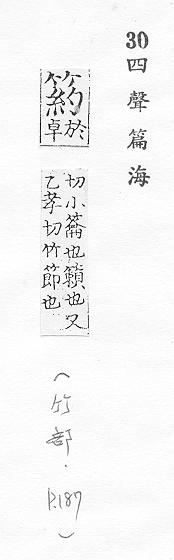 30 四聲篇海
箹於卓
切小籥也籟也又
乙孝切竹節也
(竹部.P.187)